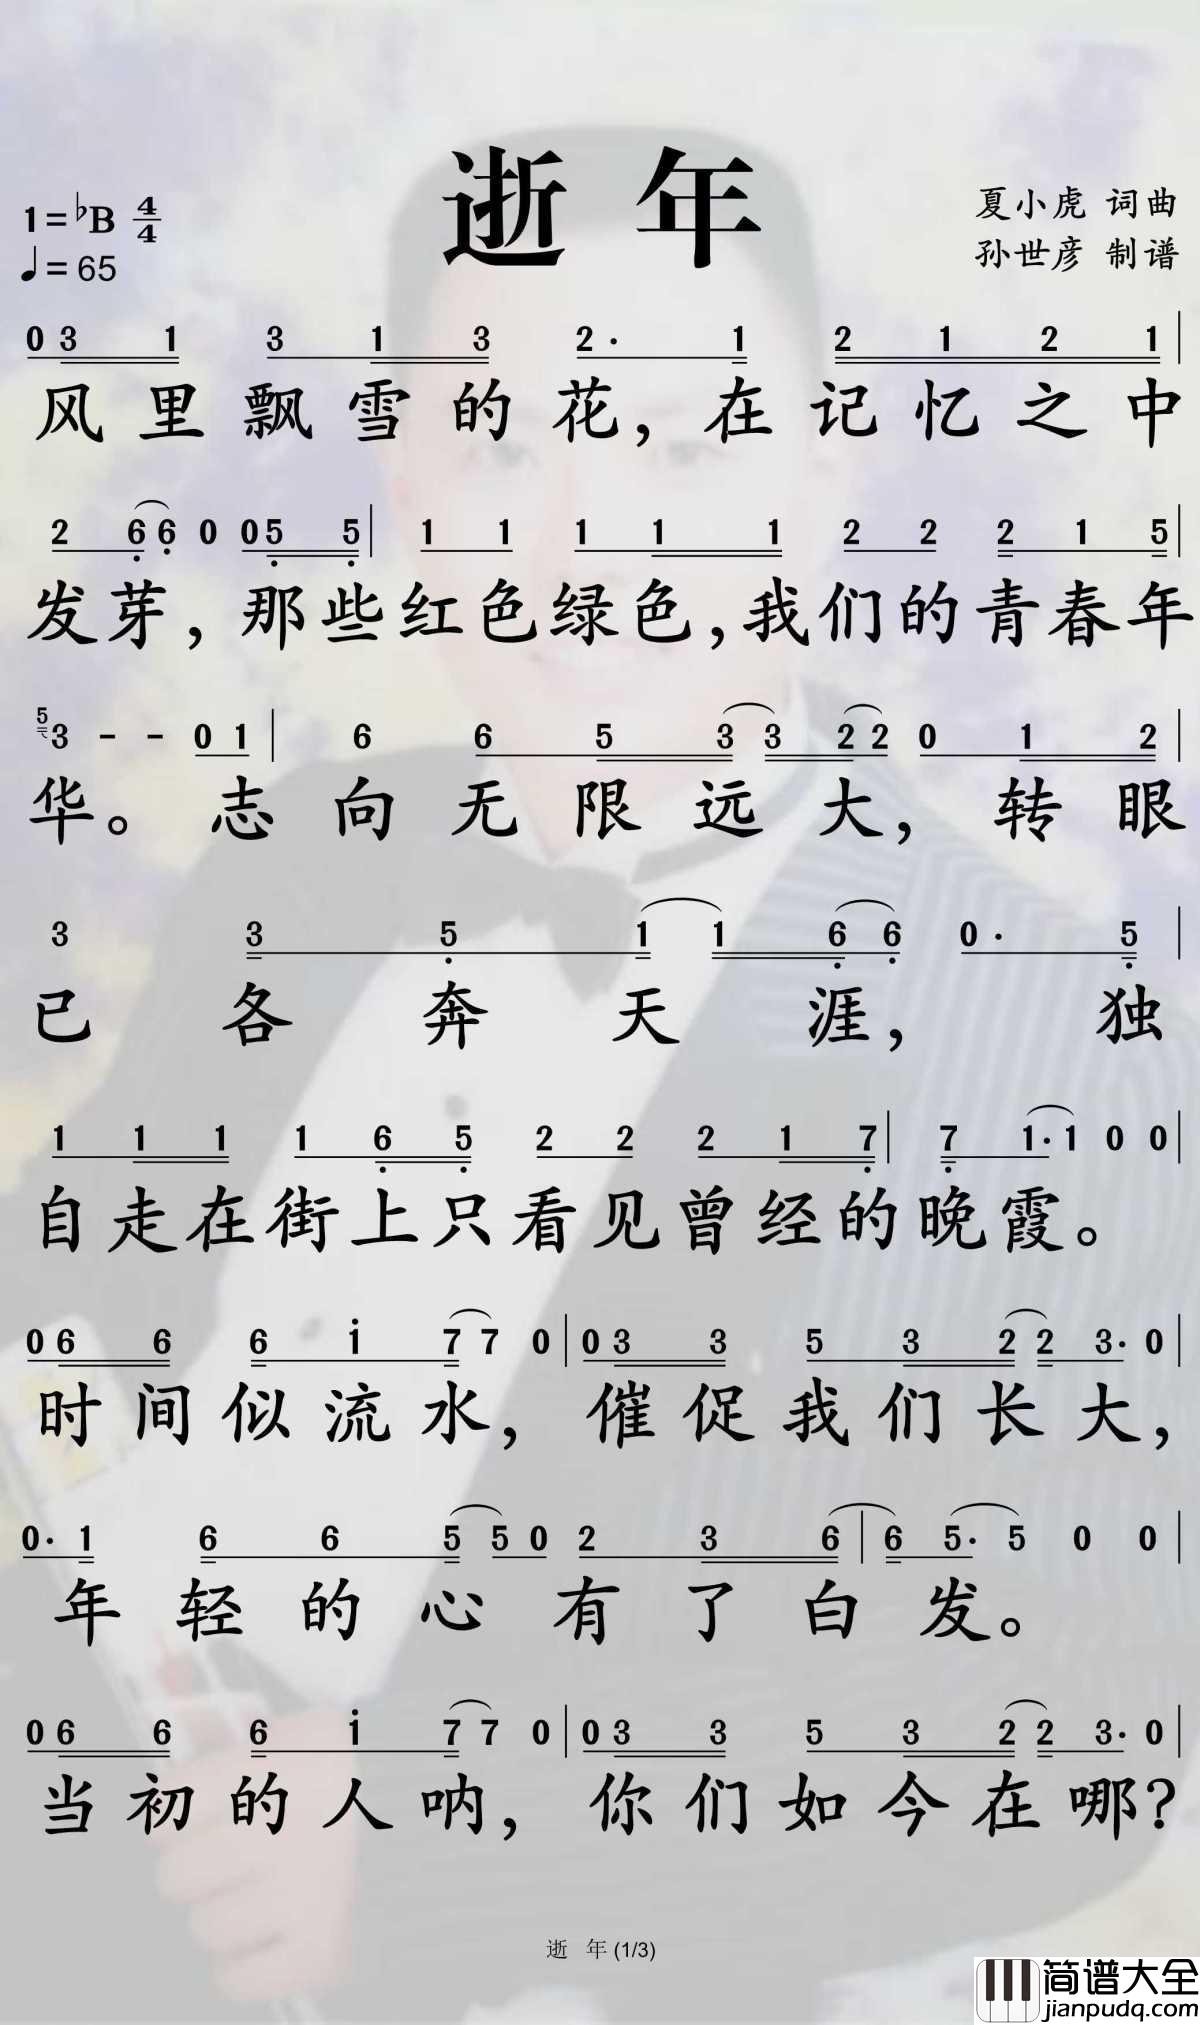 逝年
1=♭B 4/4
♩=65
夏小虎 词曲
孙世彦 制谱
0 3 1 3 1 3 2· 1 2 1 2 1 |
风里飘雪的花，在记忆之中
2 6̣ 6̣ 0 0 5̣ 5̣ | 1 1 1 1 1 2 2 2 1 5 |
发芽，那些红色绿色，我们的青春年
5 3 - - 0 1 | 6 6 5 3 3 2 2 0 1 2 |
华。志向无限远大，转眼
3 3 5̣ 1 1 6̣ 6̣ 0· 5̣ |
已各奔天涯，独
1 1 1 1 6̣ 5̣ 2 2 2 1 7̣ | 7̣ 1· 1 0 0 |
自走在街上只看见曾经的晚霞。
0 6 6 6 1̇ 7 7 0 | 0 3 3 5 3 2 2 3· 0 |
时间似流水，催促我们长大，
0· 1 6 6 5 5 0 2 3 6 | 6 5· 5 0 0 |
年轻的心有了白发。
0 6 6 6 1̇ 7 7 0 | 0 3 3 5 3 2 2 3· 0 |
当初的人呐，你们如今在哪？
逝 年 (1/3)
简谱大全
jianpudq.com